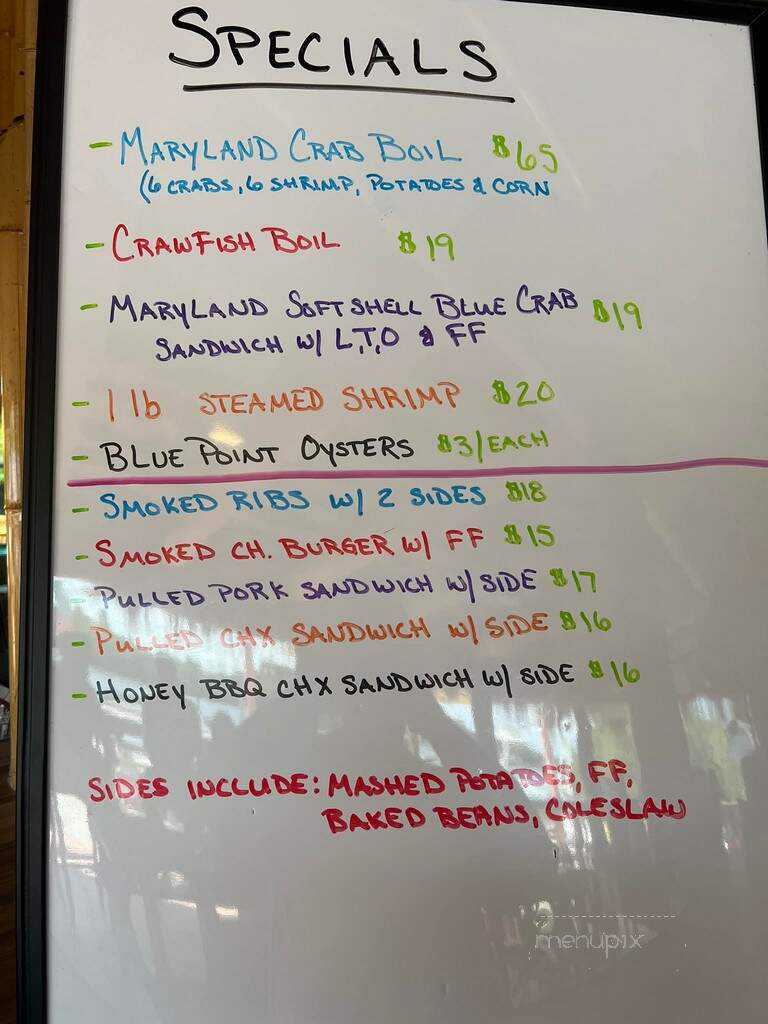 SPECIALS
- MARYLAND CRAB BOIL $65
(6 CRABS, 6 SHRIMP, POTATOES & CORN
- CRAWFISH BOIL $19
- MARYLAND SOFTSHELL BLUE CRAB $19
SANDWICH W/ L,T,O & FF
- 1 lb STEAMED SHRIMP $20
- BLUE POINT OYSTERS $3/EACH
- SMOKED RIBS W/ 2 SIDES $18
- SMOKED CH. BURGER W/ FF $15
- PULLED PORK SANDWICH W/ SIDE $17
- PULLED CHX SANDWICH W/ SIDE $16
- HONEY BBQ CHX SANDWICH W/ SIDE $16
SIDES INCLUDE: MASHED POTATOES, FF,
BAKED BEANS, COLESLAW
menupix